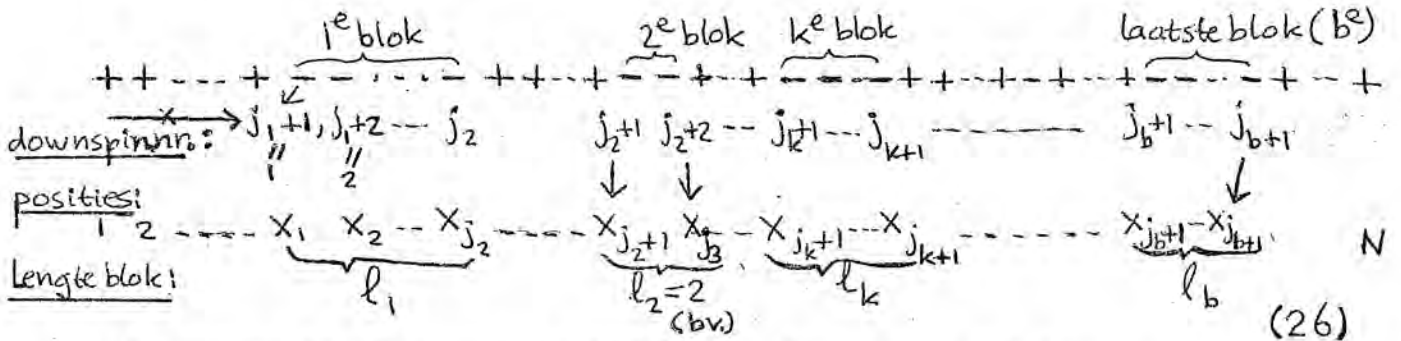 1e blok 2e blok ke blok laatste blok (be)
+ + - - - - + - - · - · - + + - - + - - + - - + - - - + + - - + - - + - - + - - · - + - - +
downspinnr.: j₁+1, j₁+2 --- j₂ j₂+1 j₂+2 -- jₖ+1 --- jₖ₊₁ -------- j_b+1 -- j_{b+1}
" 1 " 2
posities:
1 2 ----- x₁ x₂ -- x_{j₂} ------ x_{j₂+1} x_{j₃} -- x_{jₖ+1} --- x_{jₖ₊₁} -------- x_{j_b+1} -- x_{j_{b+1}} N
Lengte blok: ℓ₁ ℓ₂=2 ℓₖ ℓ_b
(bv.) (26)